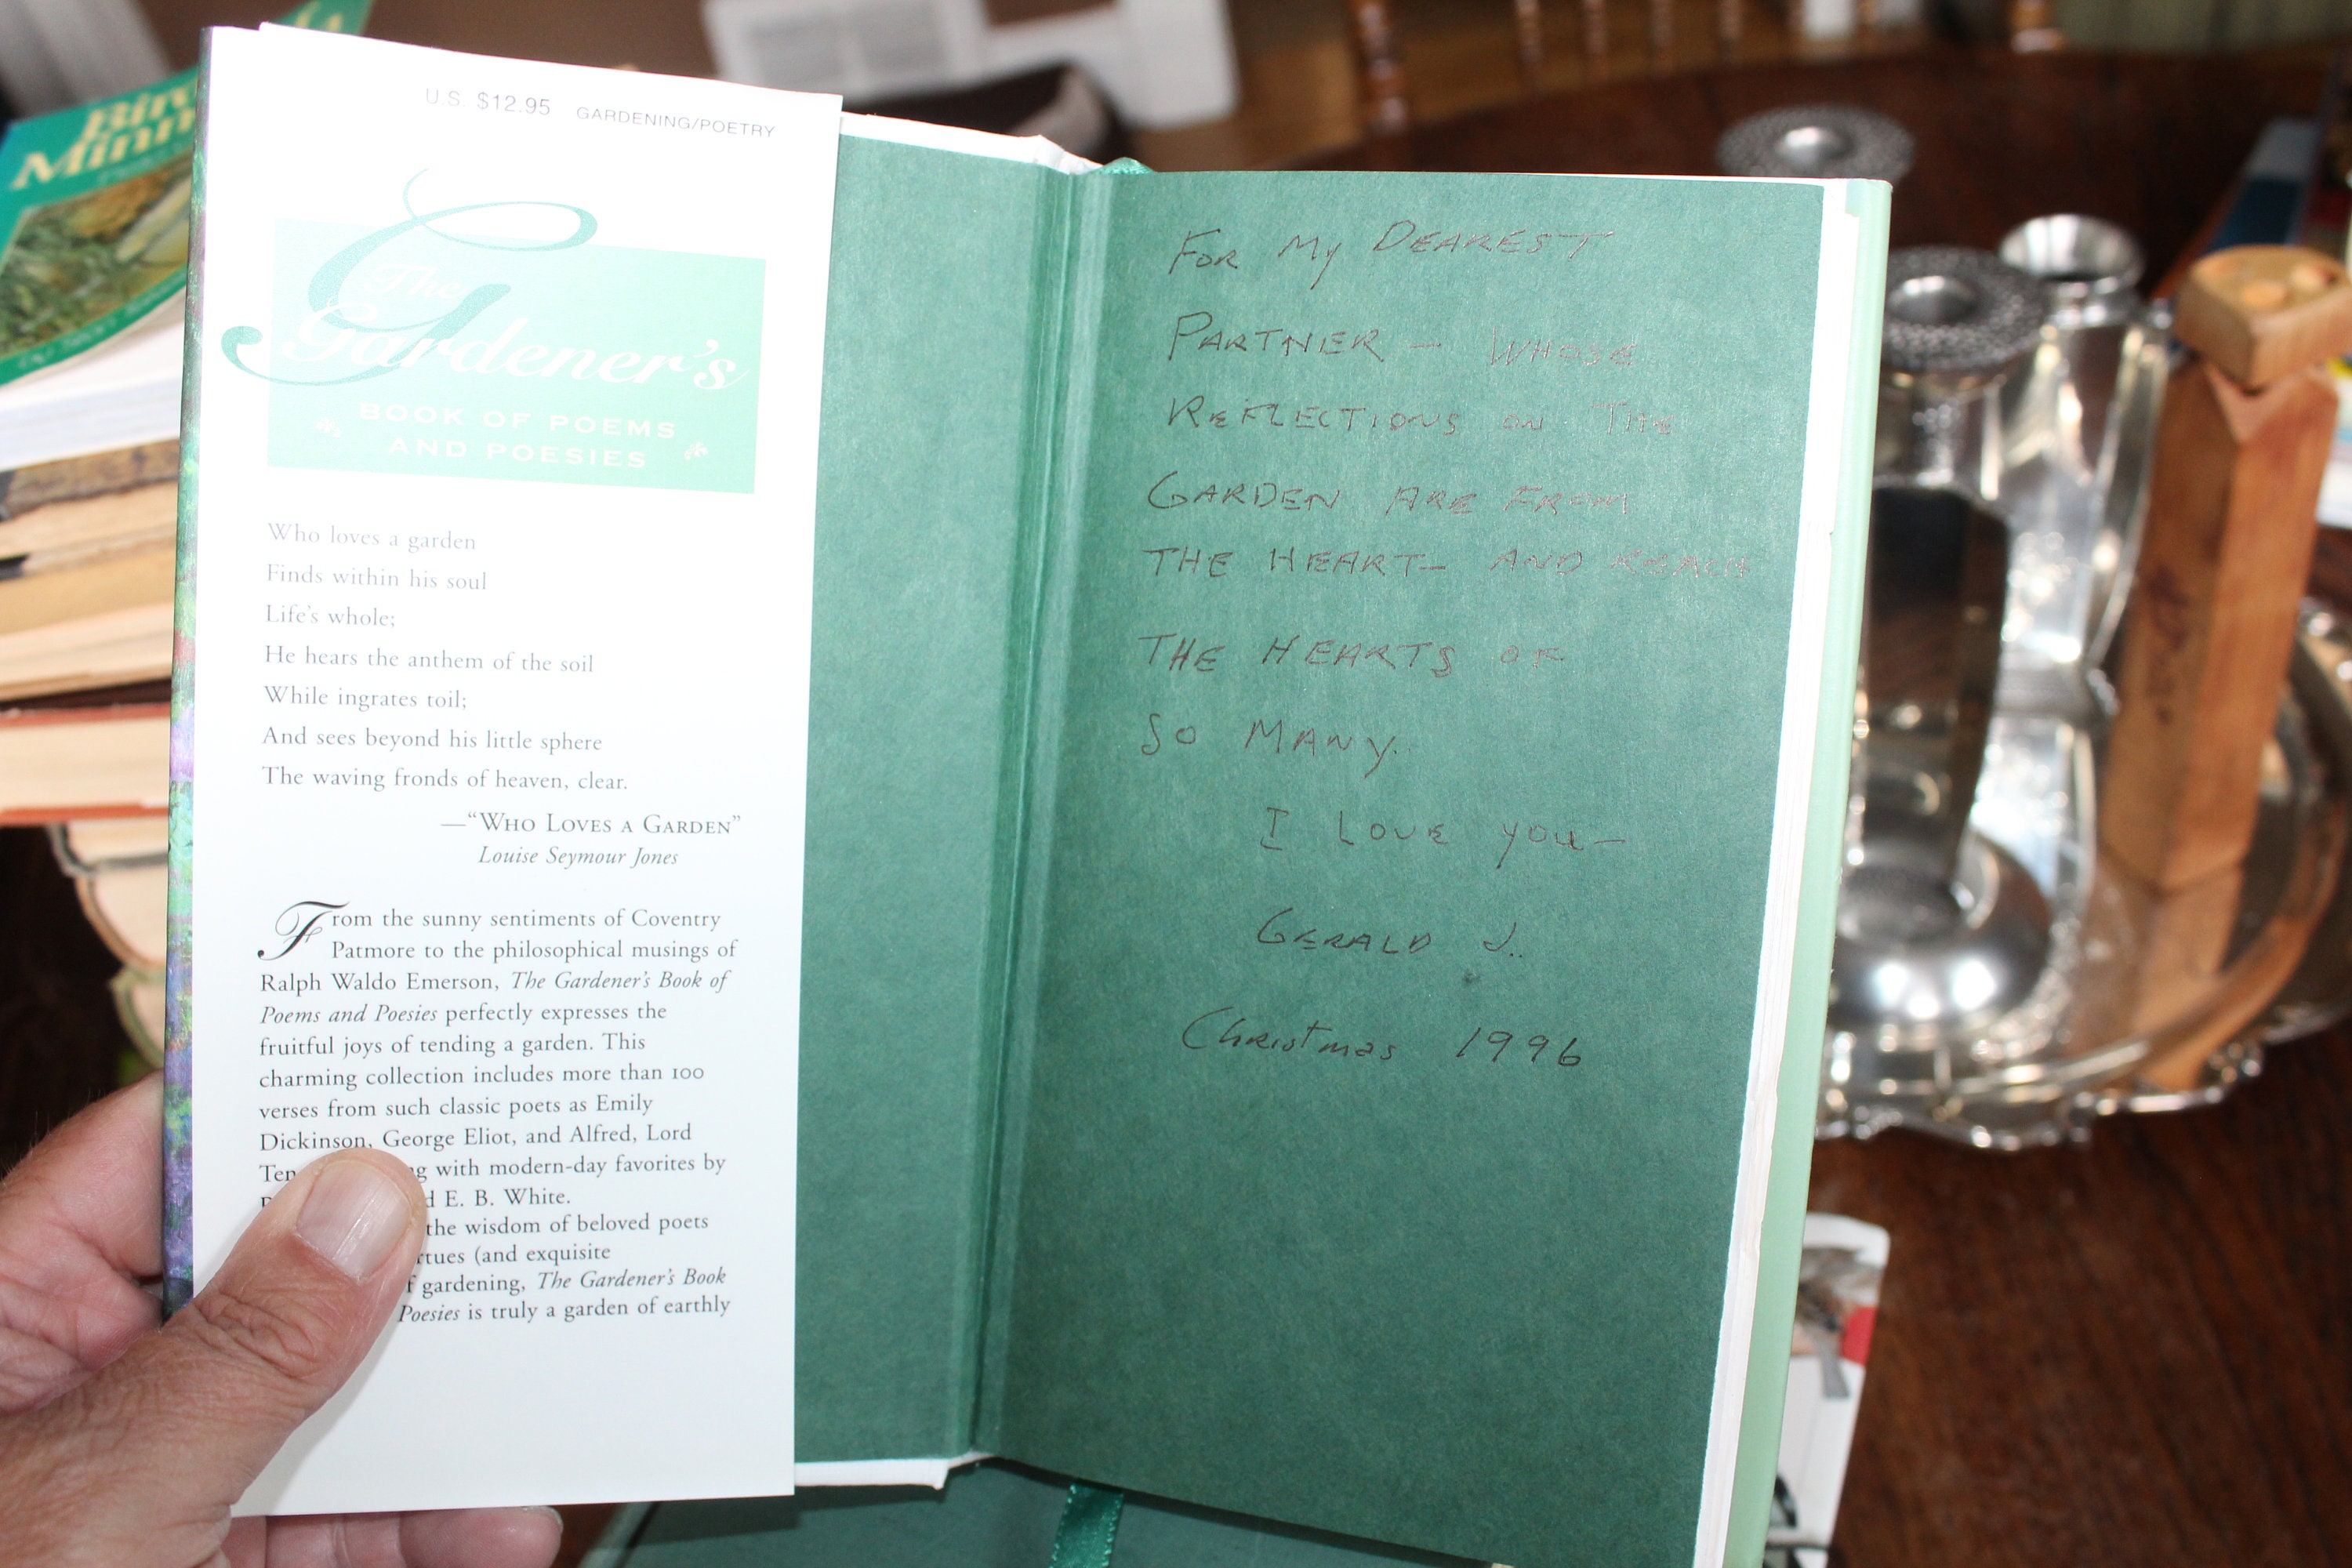 U.S. $12.95 GARDENING/POETRY
The
Gardener's
BOOK OF POEMS
AND POESIES
Who loves a garden
Finds within his soul
Life's whole;
He hears the anthem of the soil
While ingrates toil;
And sees beyond his little sphere
The waving fronds of heaven, clear.
—"WHO LOVES A GARDEN"
Louise Seymour Jones
From the sunny sentiments of Coventry
Patmore to the philosophical musings of
Ralph Waldo Emerson, The Gardener's Book of
Poems and Poesies perfectly expresses the
fruitful joys of tending a garden. This
charming collection includes more than 100
verses from such classic poets as Emily
Dickinson, George Eliot, and Alfred, Lord
with modern-day favorites by
E. B. White.
the wisdom of beloved poets
(and exquisite
gardening, The Gardener's Book
Poesies is truly a garden of earthly
FOR MY DEAREST
PARTNER — WHOSE
REFLECTIONS ON THE
GARDEN ARE FROM
THE HEART— AND REACH
THE HEARTS OF
SO MANY..
I LOVE YOU—
GERALD J..
Christmas 1996